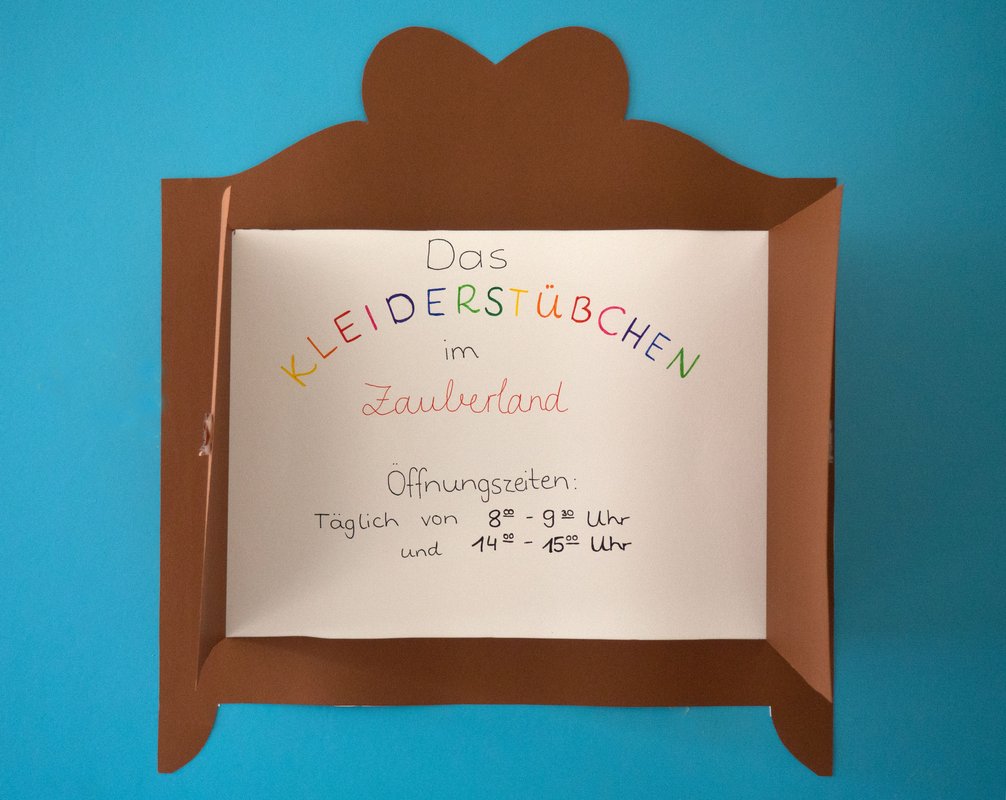 Das
KLEIDERSTÜBCHEN
im
Zauberland
Öffnungszeiten:
Täglich von 8⁰⁰ - 9³⁰ Uhr
und 14⁰⁰ - 15⁰⁰ Uhr